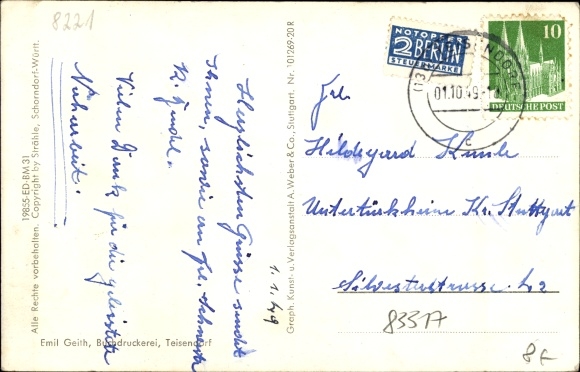 8221
Herzlichsten Grüsse sendet
Ihnen, sowie an Frl. Schmidt
R. Zundel.
Vielen Dank für die geleistete
Näharbeit.
1.1.49
19855-ED-BM.31
Alle Rechte vorbehalten. Copyright by Strähle, Schorndorf-Württ.
Emil Geith, Buchdruckerei, Teisendorf
Graph. Kunst- u. Verlagsanstalt A. Weber & Co., Stuttgart. Nr. 101269-20 R
NOTOPFER
2 BERLIN
STEUERMARKE
10
DEUTSCHE POST
01.10.49
c
Frl.
Hildegard Kunle
Untertürkheim Kr. Stuttgart
Silvesterstrasse 42
8337A
8f